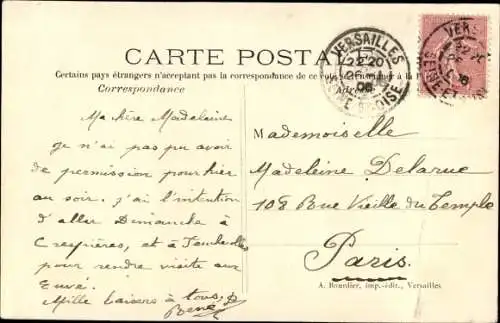 CARTE POSTALE
Certains pays étrangers n'acceptant pas la correspondance de ce
Correspondance
VERSAILLES
22 20
SEINE ET OISE
Ma chère Madeleine
Je n'ai pas pu avoir
de permission pour hier
au soir. j'ai l'intention
d'aller Dimanche à
Crespières, et à
pour rendre visite aux
Mille baisers à tous
René
Mademoiselle
Madeleine Delarue
108 Rue Vieille du Temple
Paris
A. Bourdier, imp.-édit., Versailles